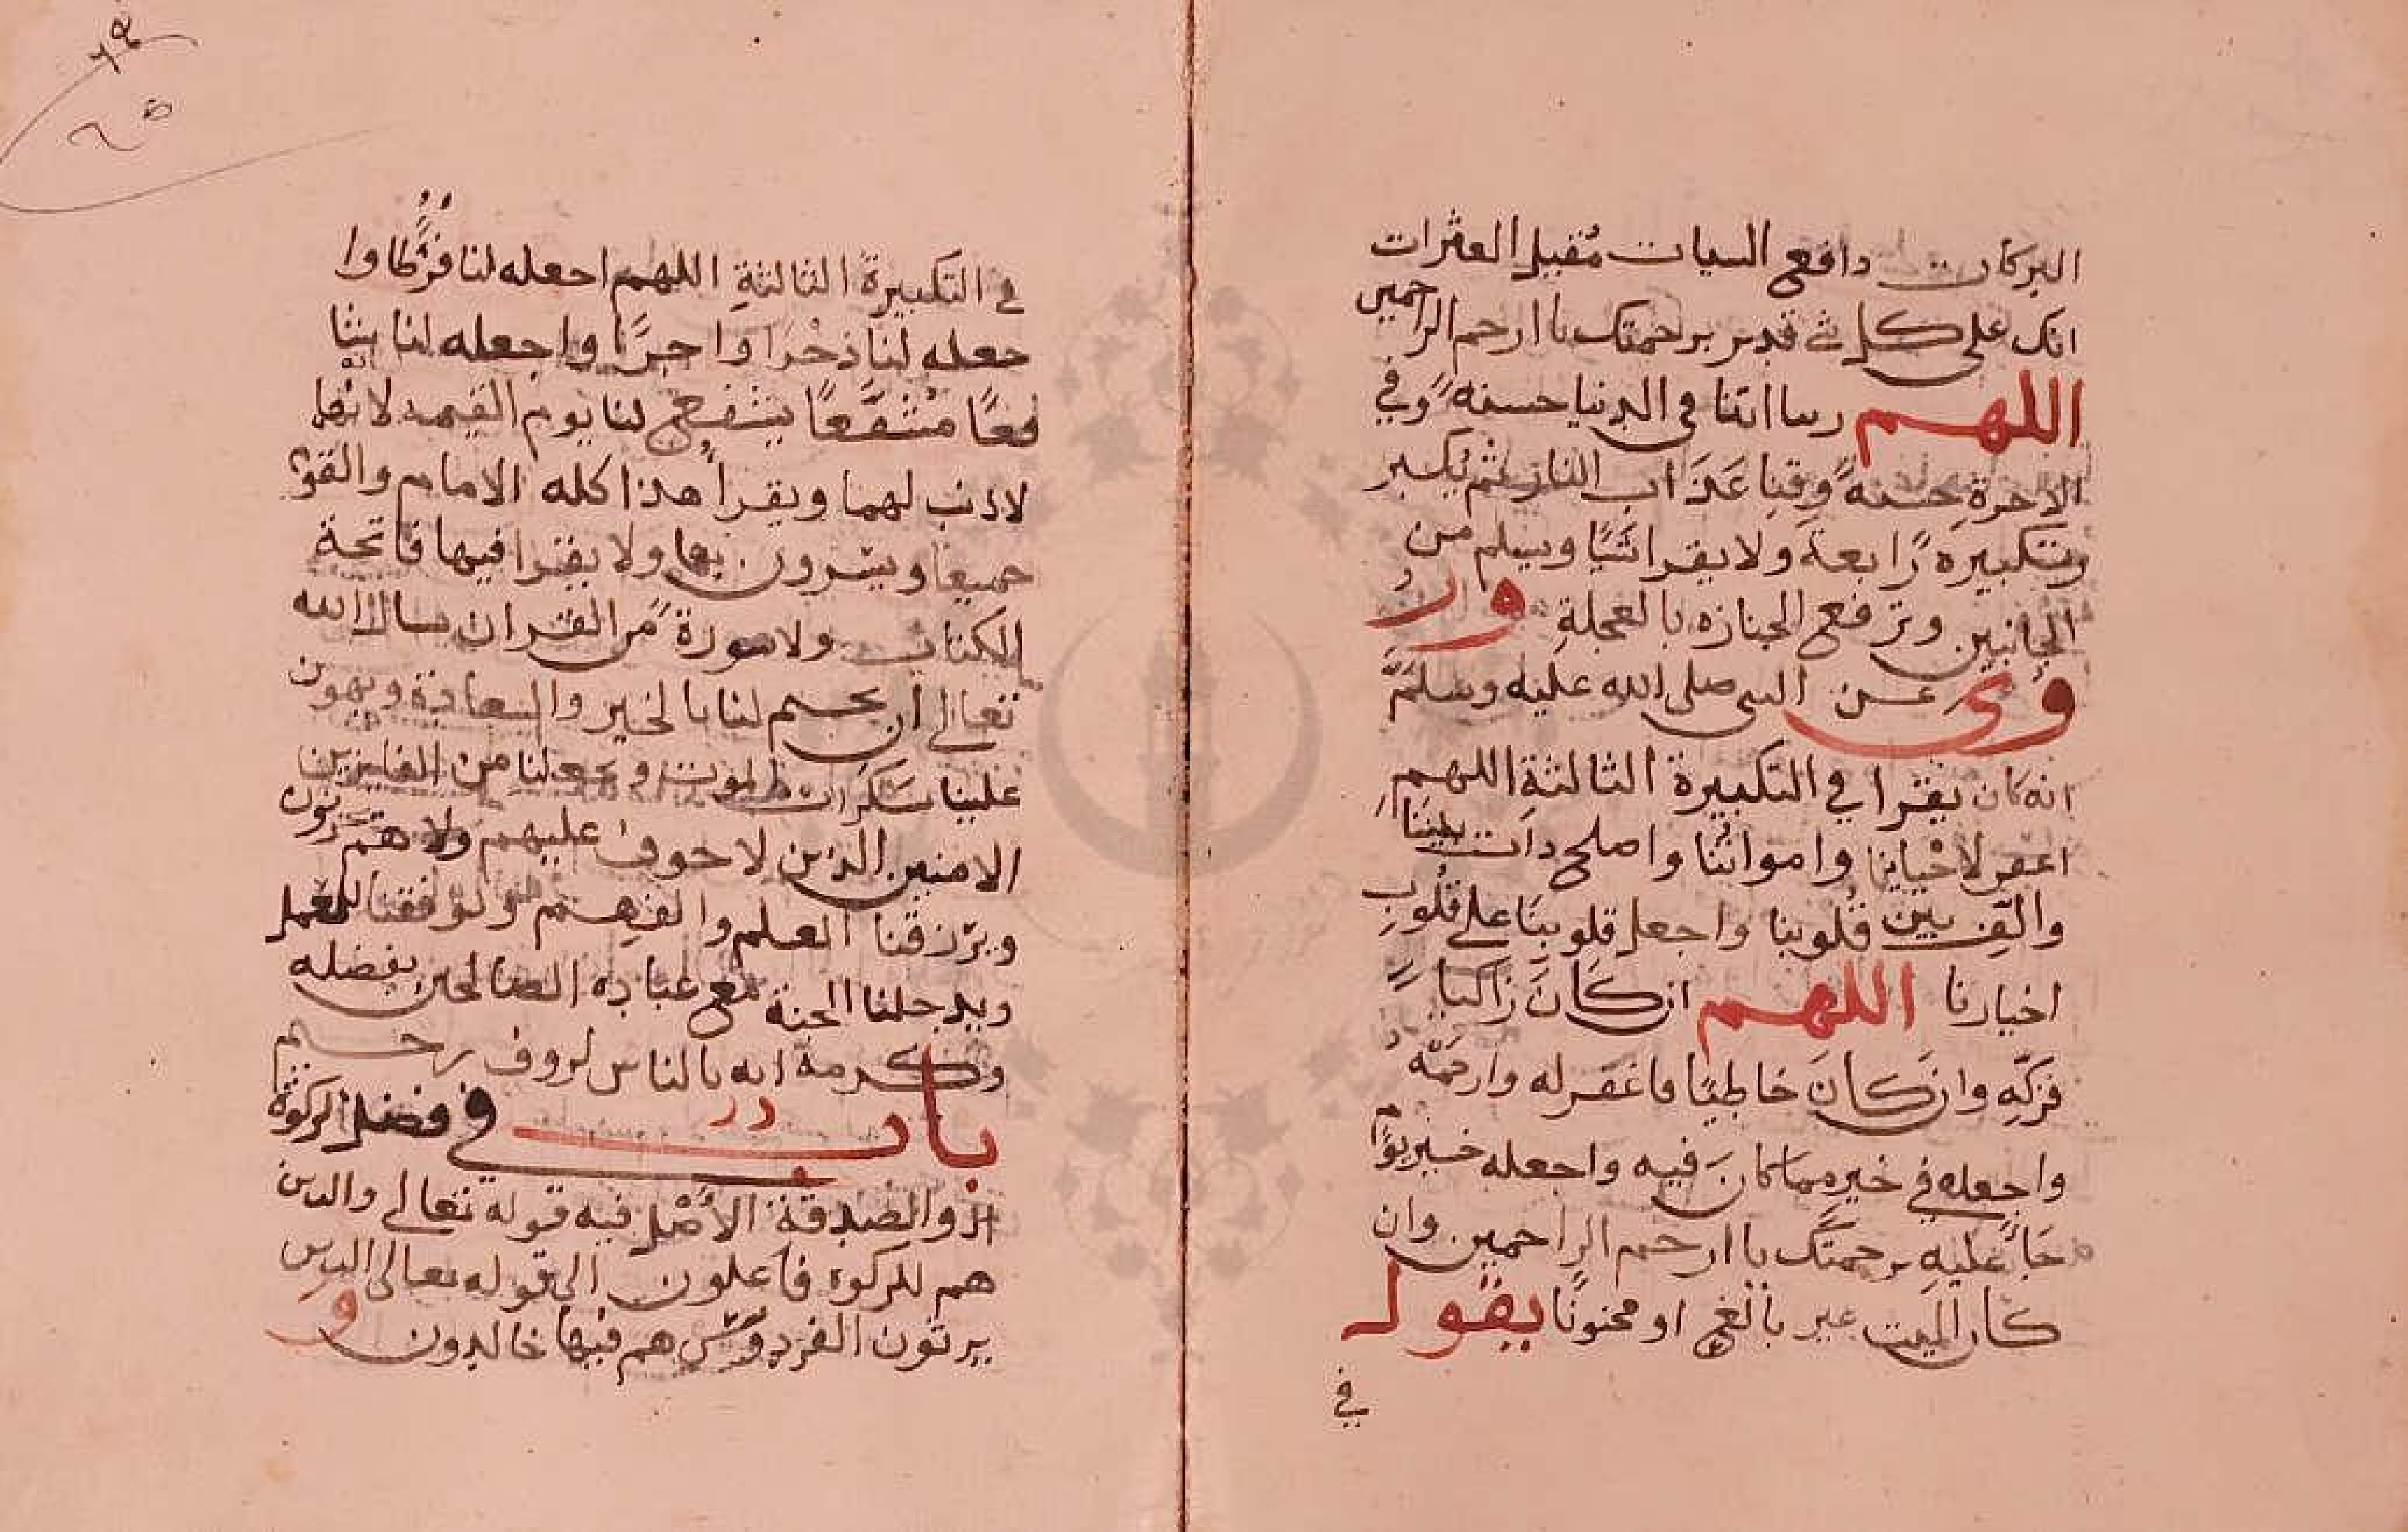 البركات دافع السيات مُقيل العثرات
انك على كل شي قدير برحمتك يا ارحم الراحمين
اللهم ربنا اتنا في الدنيا حسنةً وفي
الاخرةِ حسنةً وقِنا عَذَاب النار ثم يُكبر
وتكبيرةً رابعة ولا يقرا شيًا ويسلم من
الجانبين وترفع الجنازه بالعجلةِ ور
وي عن النبي صلى الله عليه وسلم
انه كان يقرا في التكبيرة الثالثةِ اللهم
اغفر لاحْيائِنا وامواتُنا واصلح ذات بيننا
والّف بين قلُوبنا واجعل قلوبنا على قلُوبِ
اخيارنا اللهم ان كَانَ زاكيًا
فزكّهِ وان كانَ خاطيًا فاغفر له وارحمّه
واجعله في خير مما كانَ فيه واجعله خير يوْم
جَاءَ عليهِ برحمتَك يا ارحم الراحمين وان
كان الميت غير بالغٍ او مجنونًا يقول
في
في التكبيرة الثالثةِ اللهم اجعله لنا فرَطًا وا
جعله لنا ذخْرًا واجرًا واجعله لنا شا
فعًا مشفَّعًا يشفع لنا يوم القيمه لانهما
لا ذنب لهما ويقرأ هذا كله الامام والقوم
جميعًا ويسرون بها ولا يقرا فيها فاتحة
الكتاب ولا سورة من القران نسال الله
تعالى ان يختم لنا بالخير والسعادة ويهون
علينا سَكَرات الموت ويجعلنا من الفايزين
الامنين الذين لا خوف عليهم ولا هم يحزنون
ويرزقنا العلم والفهم ولوفقنا للعمل
ويدخلنا الجنة مع عباده الصالحين بفضله
وكرمه انه بالناس لروف رحيم
باب در في فضل الزكوة
والصدقة الأصْل فيه قوله تعالى والذين
هم للزكوة فاعلون الى قوله تعالى الذين
يرثون الفردوس هم فيها خالدون و